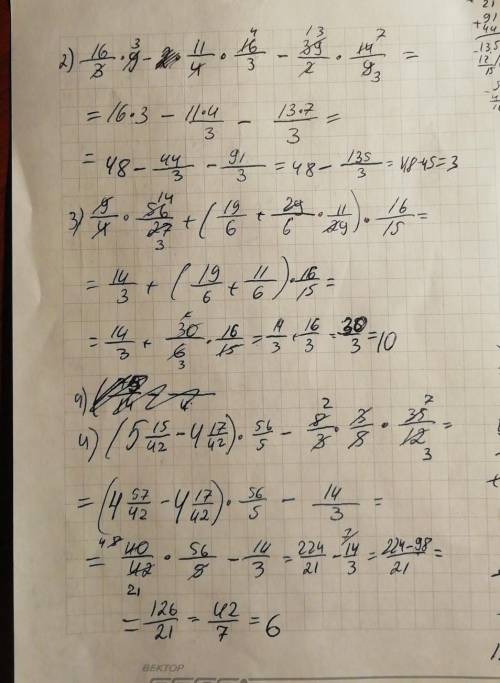 2) 16/3 · 9 3 - 11/4 · 16 4/3 - 39 13/2 · 14 7/9 3 =
= 16·3 - 11·4/3 - 13·7/3 =
= 48 - 44/3 - 91/3 = 48 - 135/3 = 48-45=3
3) 9/4 · 56 14/27 3 + (19/6 + 29/6 · 11/29) · 16/15 =
= 14/3 + (19/6 + 11/6) · 16/15 =
= 14/3 + 30/6 3 · 16/15 = 14/3 + 16/3 = 30/3 = 10
4)
4) (5 15/42 - 4 17/42) · 56/5 - 8 2/3 · 3/8 · 35 7/12 3 =
= (4 57/42 - 4 17/42) · 56/5 - 14/3 =
= 40/42 21 · 56/5 - 14/3 = 224/21 - 14 7/3 = 224-98/21 =
= 126/21 = 42/7 = 6
ВЕКТОР